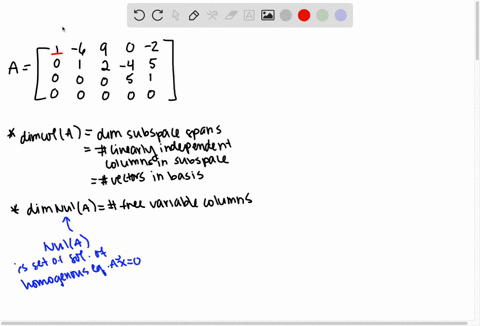 1 -6 9 0 -2
A = 0 1 2 -4 5
0 0 0 5 1
0 0 0 0 0
* dim col(A) = dim subspace spans
= # linearly independent
columns in subspace
= # vectors in basis
* dim Nul(A) = # free variable columns
Nul(A)
is set of sol. of
homogenous eq. Ax=0